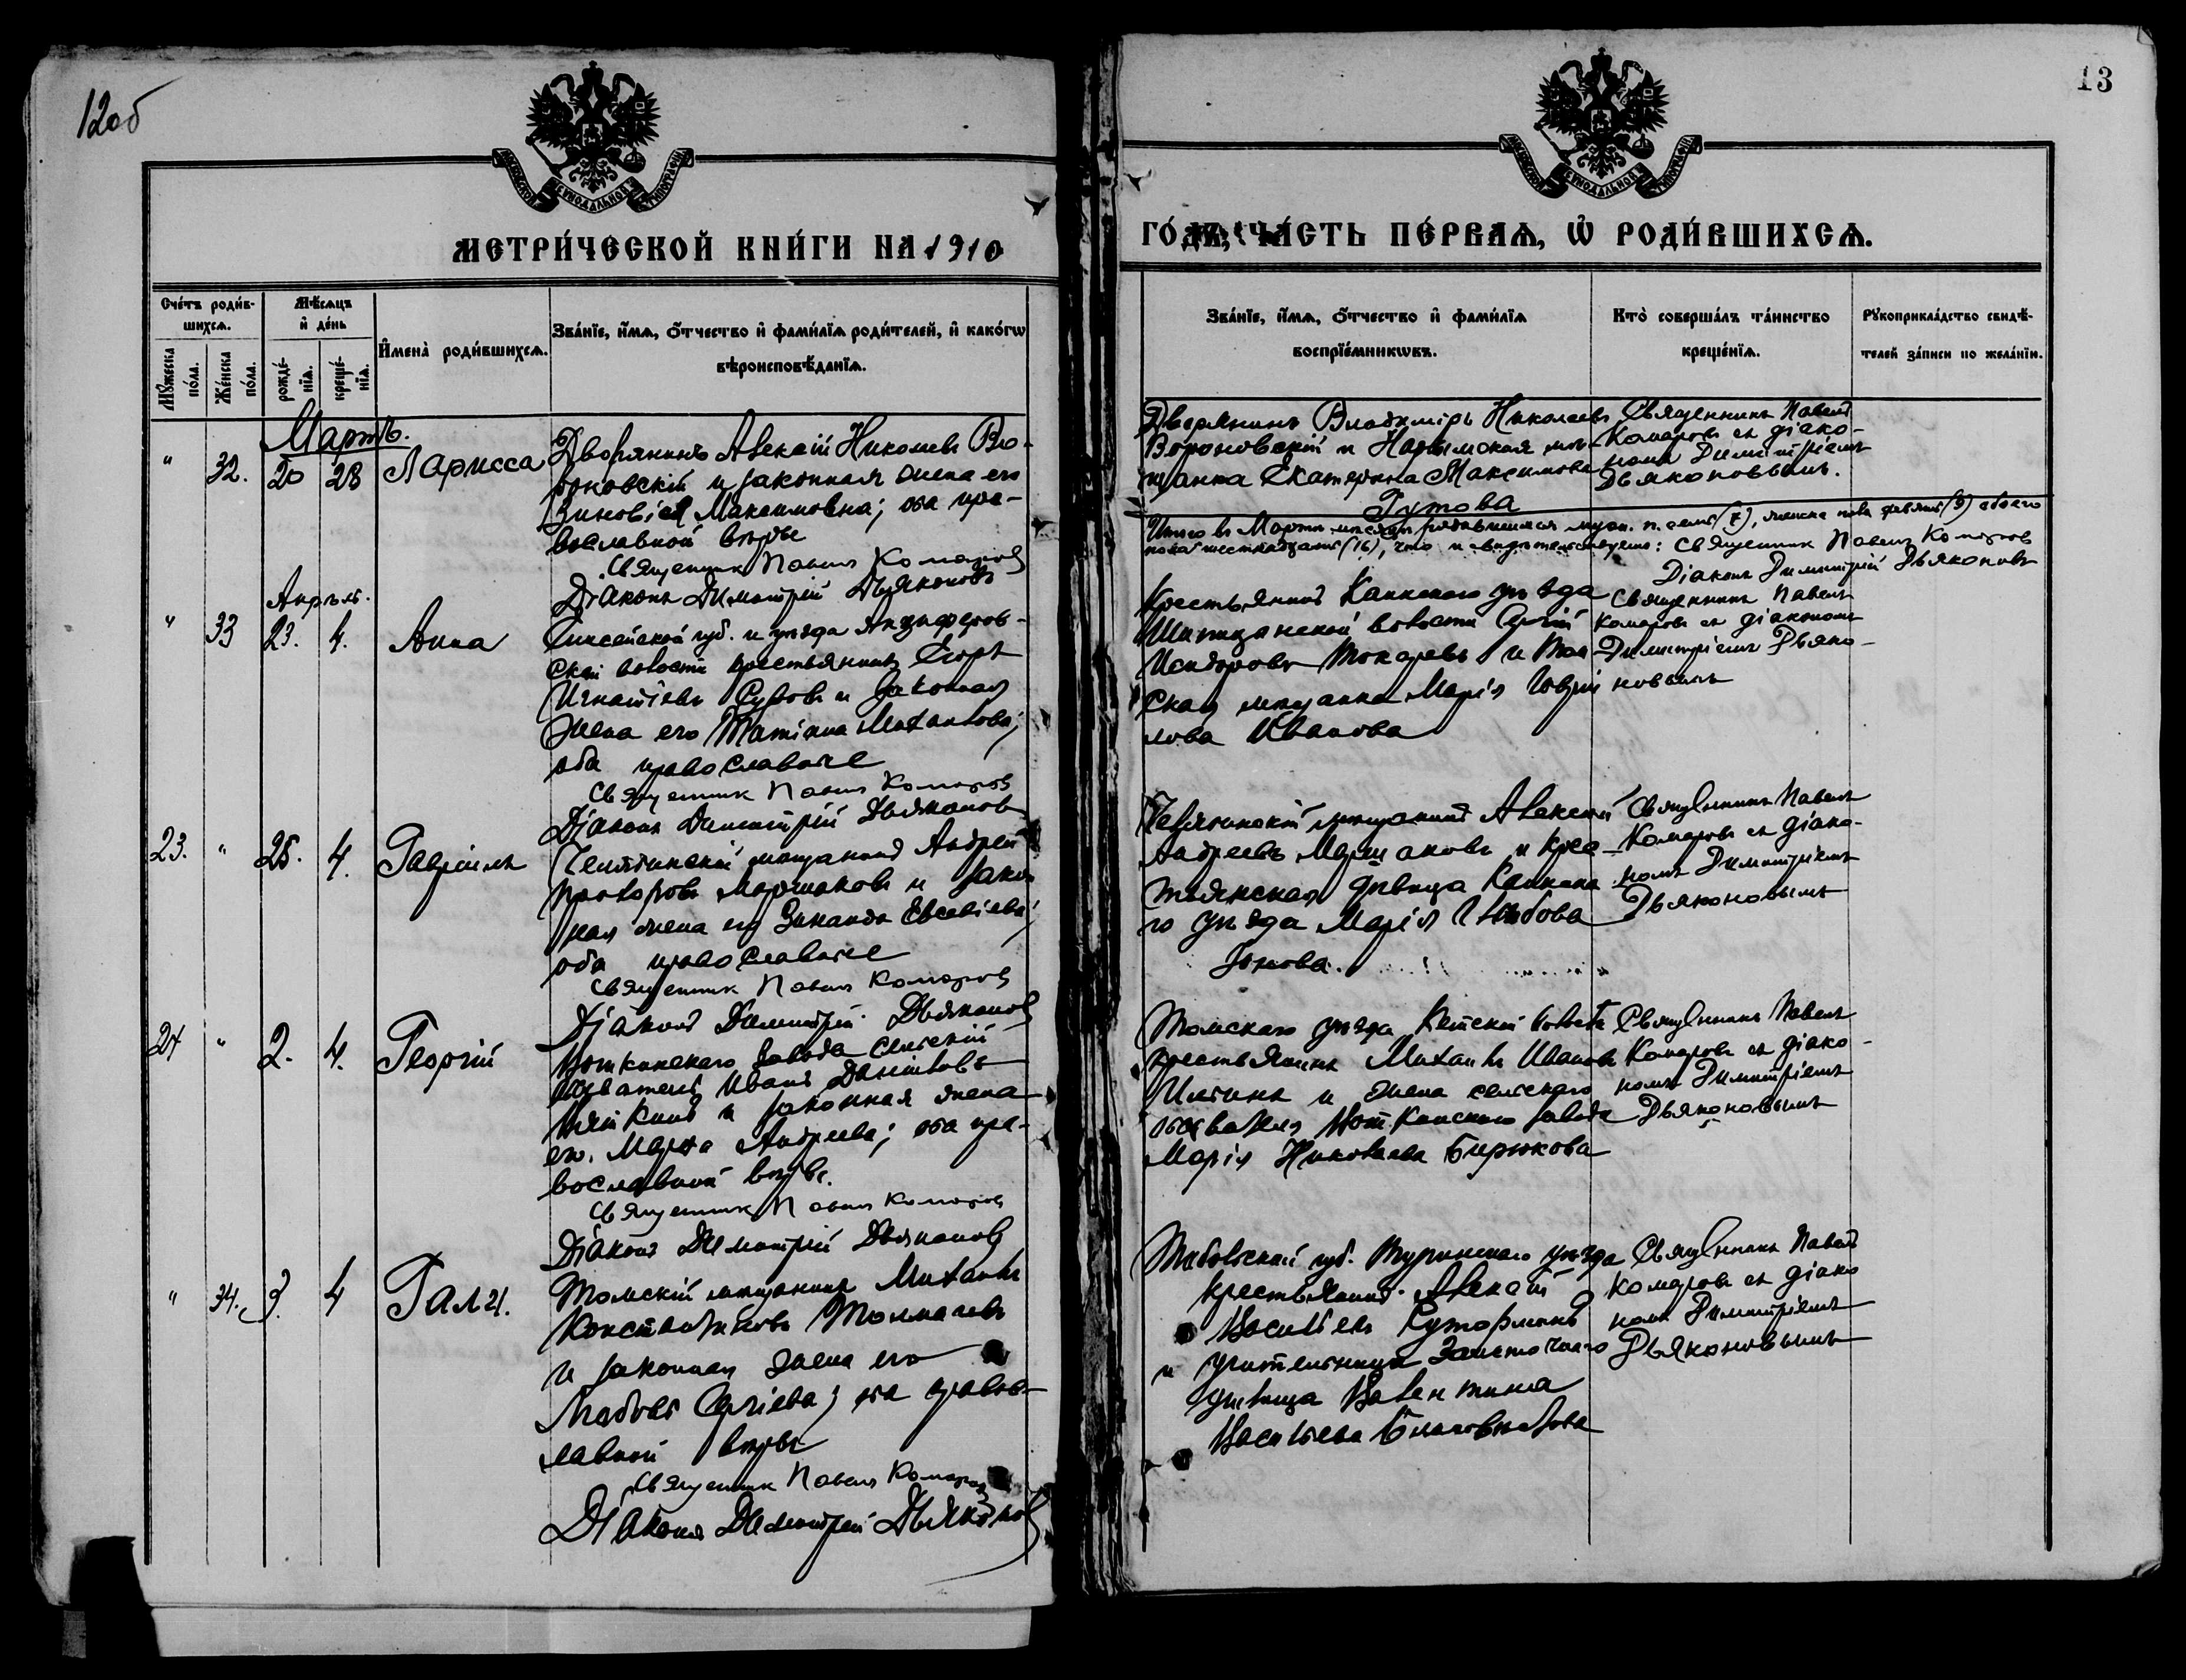 12об
МЕТРИ́ЧЕСКОЙ КНИ́ГИ НА 1910
Сче́тъ роди́в-
шихсѧ.
Мѣсѧцъ
и҆ де́нь
Мꙋ́жеска по́ла.
Же́нска по́ла.
рожде́-
нїѧ.
креще́-
нїѧ.
И҆мена̀ роди́вшихсѧ.
Зва́нїе, и҆́мѧ, ѻ҆́тчество и҆ фами́лїѧ роди́телей, и҆ како́гѡ
вѣроисповѣ́данїѧ.
Мартъ.
" 32. 20 28 Ларисса
Дворянинъ Алексій Николаевъ Во-
роновскій и законная жена его
Зиновія Максимовна; оба пра-
вославной вѣры
Священник Павел Комаров
Діаконъ Димитрій Дьяконовъ
Апрѣль.
" 33 23. 4. Анна
Енисейской губ. и уѣзда Анциферов-
ской волости крестьянинъ Егоръ
Игнатіевъ и законная
жена его Татіана Михайлова;
оба православные
Священник Павел Комаров
Діаконъ Димитрій Дьяконовъ
23. " 25. 4. Гавріилъ
мѣщанинъ Андрей
Прохоровъ и закон
ная жена его Зинаида Евсевіева;
оба православные
Священник Павел Комаров
Діаконъ Димитрій Дьяконовъ
24 " 2. 4. Георгій
Воткинскаго завода сельскій
обыватель Иванъ Даниловъ
и законная жена
его Марѳа Андреева; оба пра-
вославной вѣры.
Священник Павел Комаров
Діаконъ Димитрій Дьяконовъ
" 34. 3. 4 Галина
Томскій мѣщанинъ Михаилъ
Константиновъ Толмачевъ
и законная жена его
Любовь Сергіева; оба правос-
лавной вѣры
Священник Павел Комаров
Діаконъ Димитрій Дьяконовъ
13
ГО́ДЪ, ЧА́СТЬ ПЕ́РВАѦ, Ѡ҆ РОДИ́ВШИХСѦ.
Зва́нїе, и҆́мѧ, ѻ҆́тчество и҆ фами́лїѧ
воспрїе́мникѡвъ.
Кто̀ соверша́лъ та́инство
креще́нїѧ.
Рꙋкоприкла́дство свидѣ́-
телей за́писи по жела́нїи.
Дворянинъ Владиміръ Николаевъ
Вороновскій и Нарымская мѣ-
щанка Екатерина Максимова
Гутова
Священникъ Павелъ
Комаровъ съ діако-
номъ Димитріемъ
Дьяконовымъ.
Итого въ Мартѣ мѣсяцѣ родившихся муж. п. семь (7), женска пола девять (9) обоего
пола шестнадцать (16), что и свидѣтельствуемъ: Священник Павел Комаров
Діаконъ Димитрій Дьяконовъ
Крестьянинъ Каинскаго уѣзда
волости Сергій
Исидоровъ Токаревъ и Том
ская мѣщанка Марія Гаврии
лова Иванова
Священникъ Павелъ
Комаровъ съ діакономъ
Димитріемъ Дьяко-
новымъ
мѣщанинъ Алексѣй
Андреевъ и крес-
тьянская дѣвица Каинска
го уѣзда Марія
Священникъ Павелъ
Комаровъ съ діако-
номъ Димитріемъ
Дьяконовымъ
Томскаго уѣзда Кетской волости
крестьянинъ Михаилъ Ивановъ
и жена сельскаго
обывателя Воткинскаго завода
Марія Николаева Бирюкова
Священникъ Павелъ
Комаровъ съ діако-
номъ Димитріемъ
Дьяконовымъ
Тобольской губ. Туринскаго уѣзда
крестьянинъ Алексѣй
Васильевъ
и учительница
дѣвица Валентина
Васильева
Священникъ Павелъ
Комаровъ съ діако
номъ Димитріемъ
Дьяконовымъ